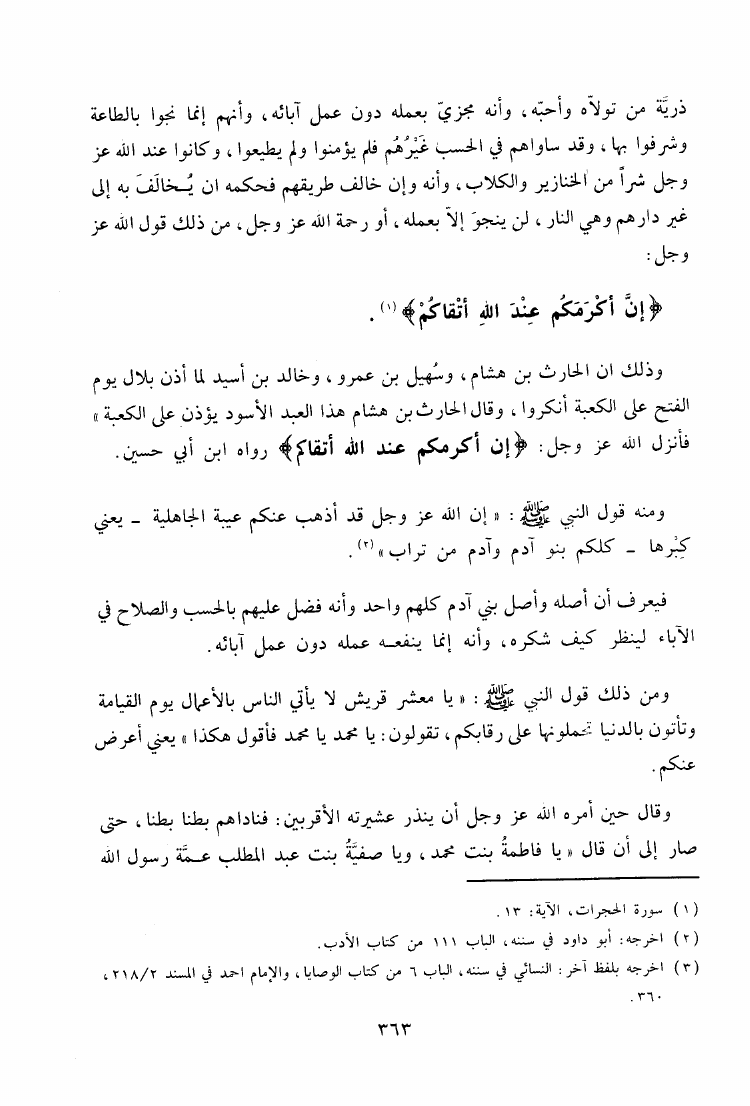 ذريَّة من تولاّه وأحبّه، وأنه مجزيّ بعمله دون عمل آبائه، وأنهم إنما نجوا بالطاعة
وشرفوا بها، وقد ساواهم في الحسب غَيْرُهُم فلم يؤمنوا ولم يطيعوا، وكانوا عند الله عز
وجل شراً من الخنازير والكلاب، وأنه وإن خالف طريقهم فحكمه ان يُخالَفَ به إلى
غير دارهم وهي النار، لن ينجوَ إلاّ بعمله، أو رحمة الله عز وجل، من ذلك قول الله عز
وجل:
﴿إنَّ أكْرَمَكُم عِنْدَ اللهِ أتْقاكُمْ﴾(١).
وذلك ان الحارث بن هشام، وسُهيل بن عمرو، وخالد بن أسيد لما أذن بلال يوم
الفتح على الكعبة أنكروا، وقال الحارث بن هشام هذا العبد الأسود يؤذن على الكعبة»
فأنزل الله عز وجل: ﴿إن أكرمكم عند الله أتقاكم﴾ رواه ابن أبي حسين.
ومنه قول النبي ﷺ: «إن الله عز وجل قد أذهب عنكم عيبة الجاهلية - يعني
كِبْرها - كلكم بنو آدم وآدم من تراب»(٢).
فيعرف أن أصله وأصل بني آدم كلهم واحد وأنه فضل عليهم بالحسب والصلاح في
الآباء لينظر كيف شكره، وأنه إنما ينفعه عمله دون عمل آبائه.
ومن ذلك قول النبي ﷺ: «يا معشر قريش لا يأتي الناس بالأعمال يوم القيامة
وتأتون بالدنيا تحملونها على رقابكم، تقولون: يا محمد يا محمد فأقول هكذا» يعني أعرض
عنكم.
وقال حين أمره الله عز وجل أن ينذر عشيرته الأقربين: فناداهم بطنا بطنا، حتى
صار إلى أن قال «يا فاطمةُ بنت محمد، ويا صفيَّةُ بنت عبد المطلب عمَّة رسول الله
(١) سورة الحجرات، الآية: ١٣.
(٢) اخرجه: أبو داود في سننه، الباب ١١١ من كتاب الأدب.
(٣) اخرجه بلفظ آخر: النسائي في سننه، الباب ٦ من كتاب الوصايا، والإمام احمد في المسند ٢١٨/٢،
٣٦٠.
٣٦٣